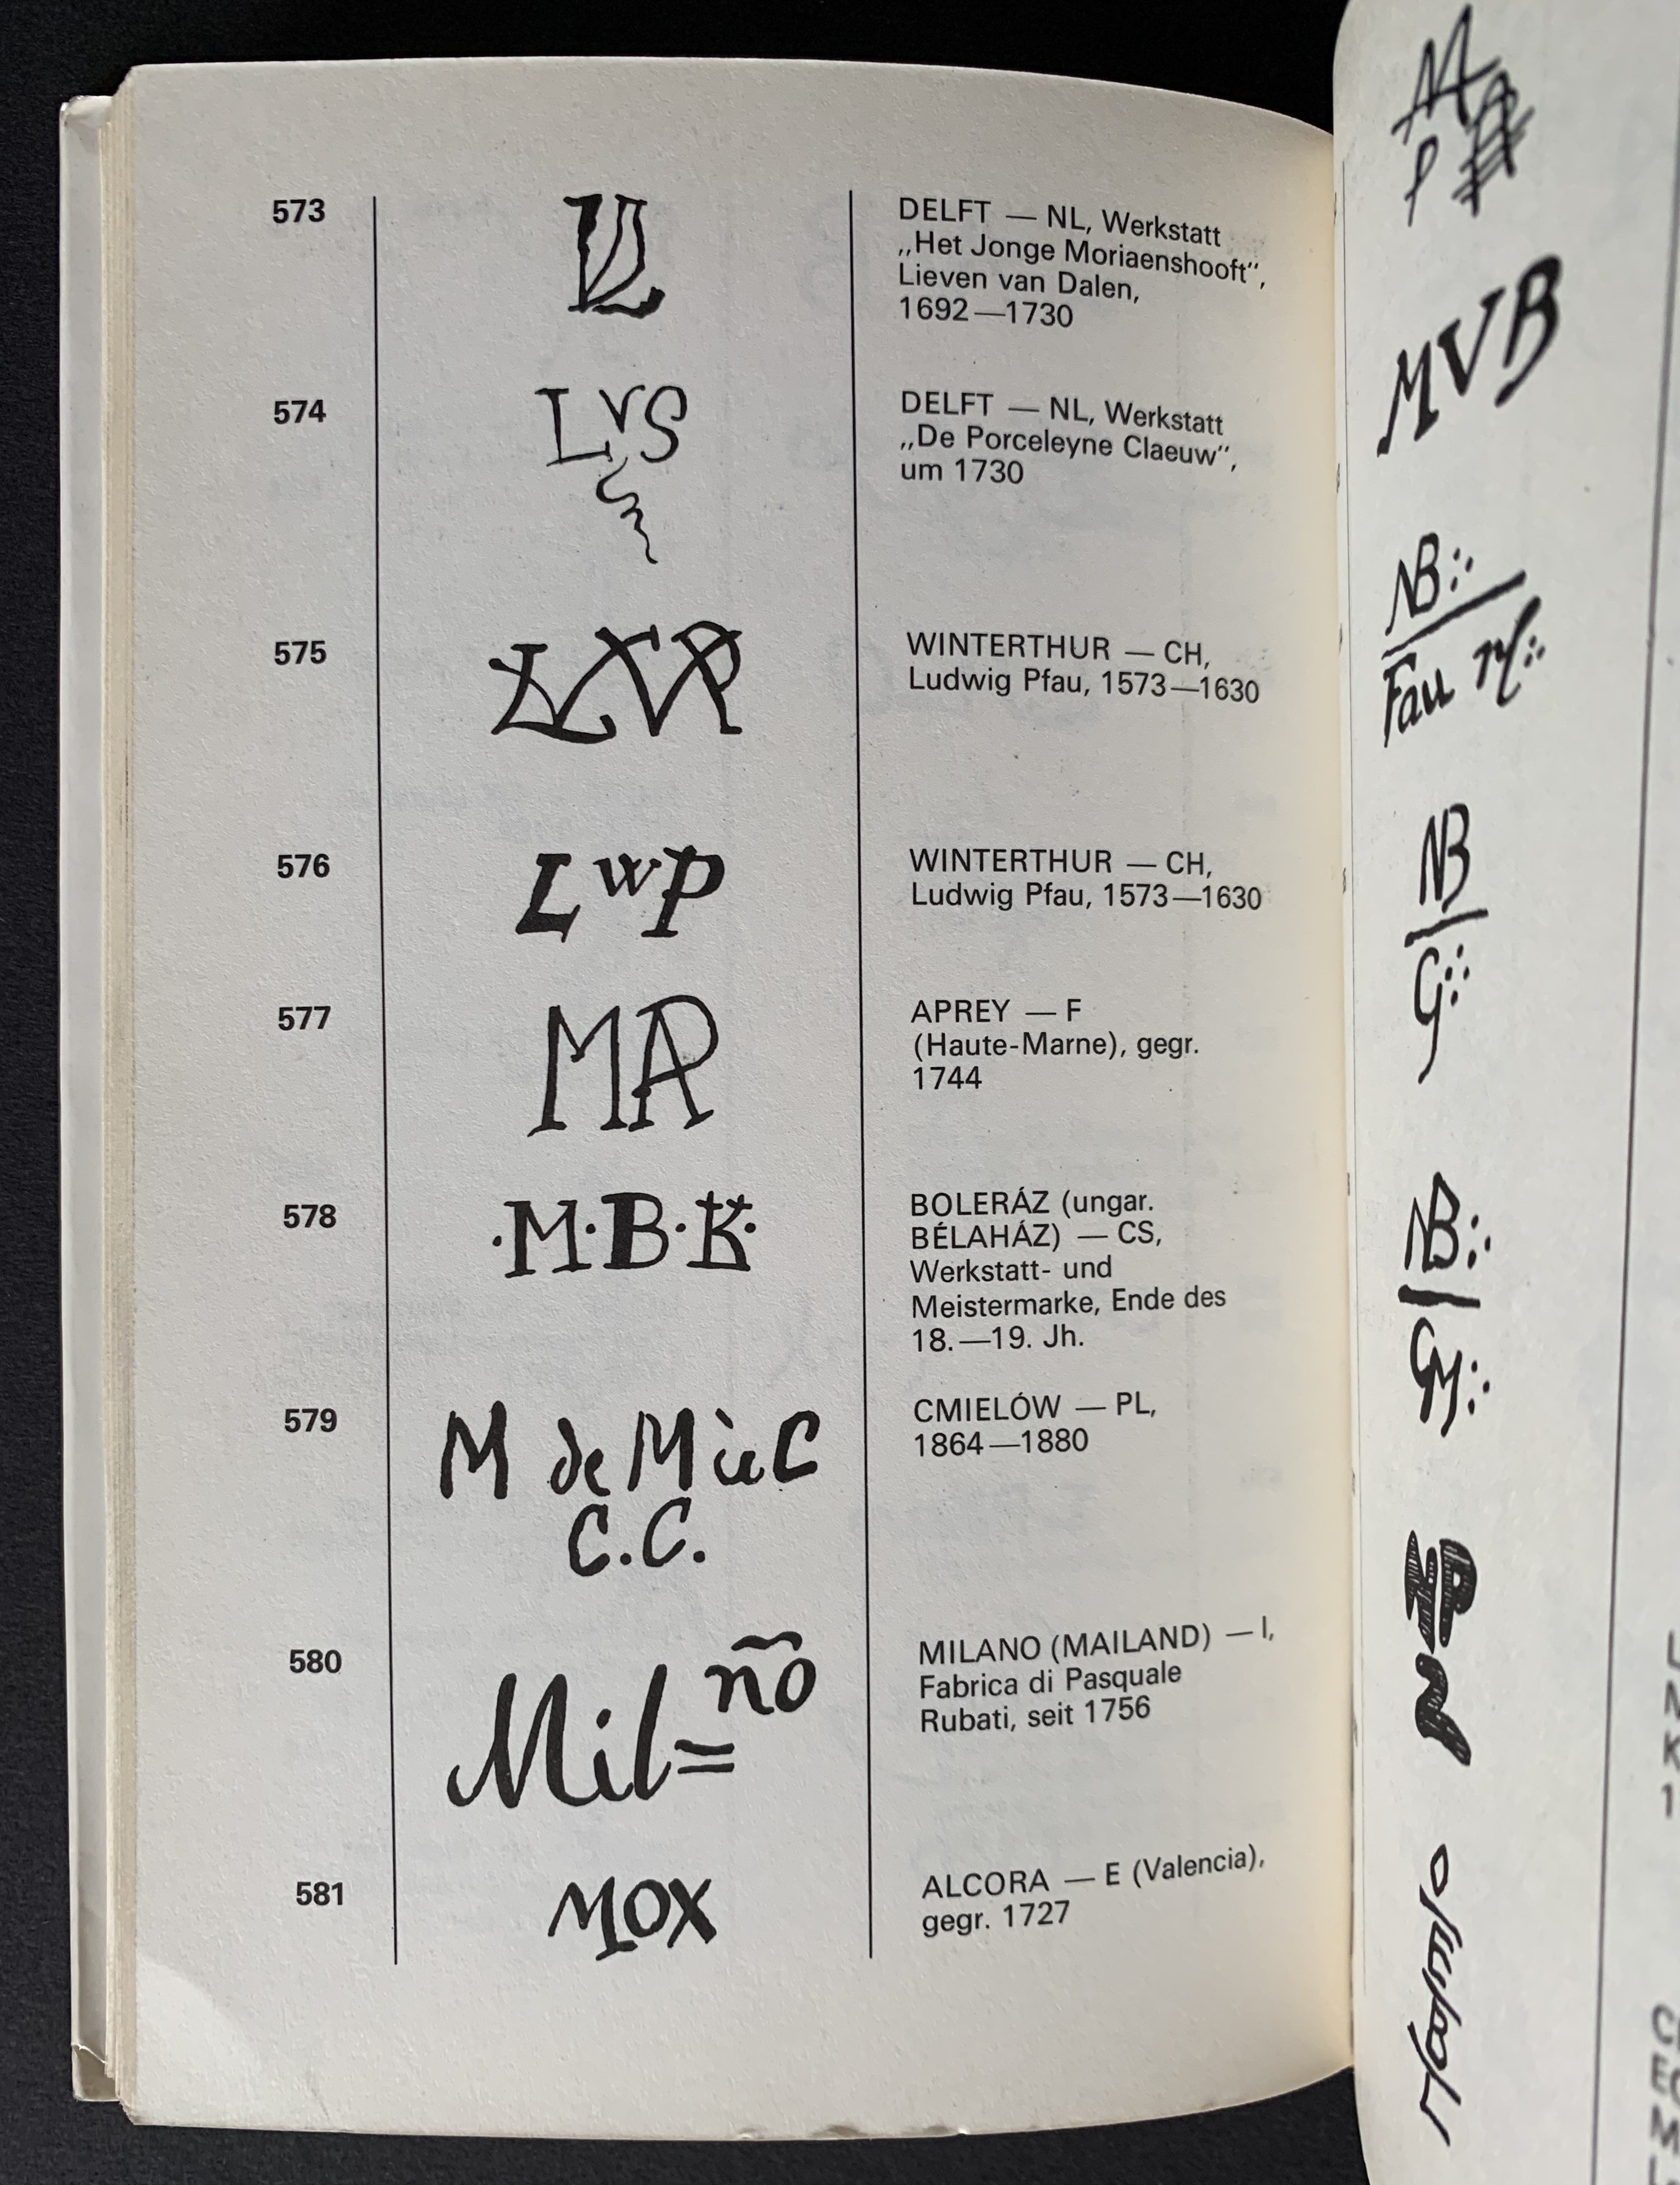 573
DELFT — NL, Werkstatt
„Het Jonge Moriaenshooft“,
Lieven van Dalen,
1692—1730
574
LvS
DELFT — NL, Werkstatt
„De Porceleyne Claeuw“,
um 1730
575
WINTERTHUR — CH,
Ludwig Pfau, 1573—1630
576
LwP
WINTERTHUR — CH,
Ludwig Pfau, 1573—1630
577
MAP
APREY — F
(Haute-Marne), gegr.
1744
578
·M·B·K·
BOLERÁZ (ungar.
BÉLAHÁZ) — CS,
Werkstatt- und
Meistermarke, Ende des
18.—19. Jh.
579
M de M
C.C.
CMIELÓW — PL,
1864—1880
580
Mil=ño
MILANO (MAILAND) — I,
Fabrica di Pasquale
Rubati, seit 1756
581
MOX
ALCORA — E (Valencia),
gegr. 1727
MVB
NB
Fau
NB
G
NB